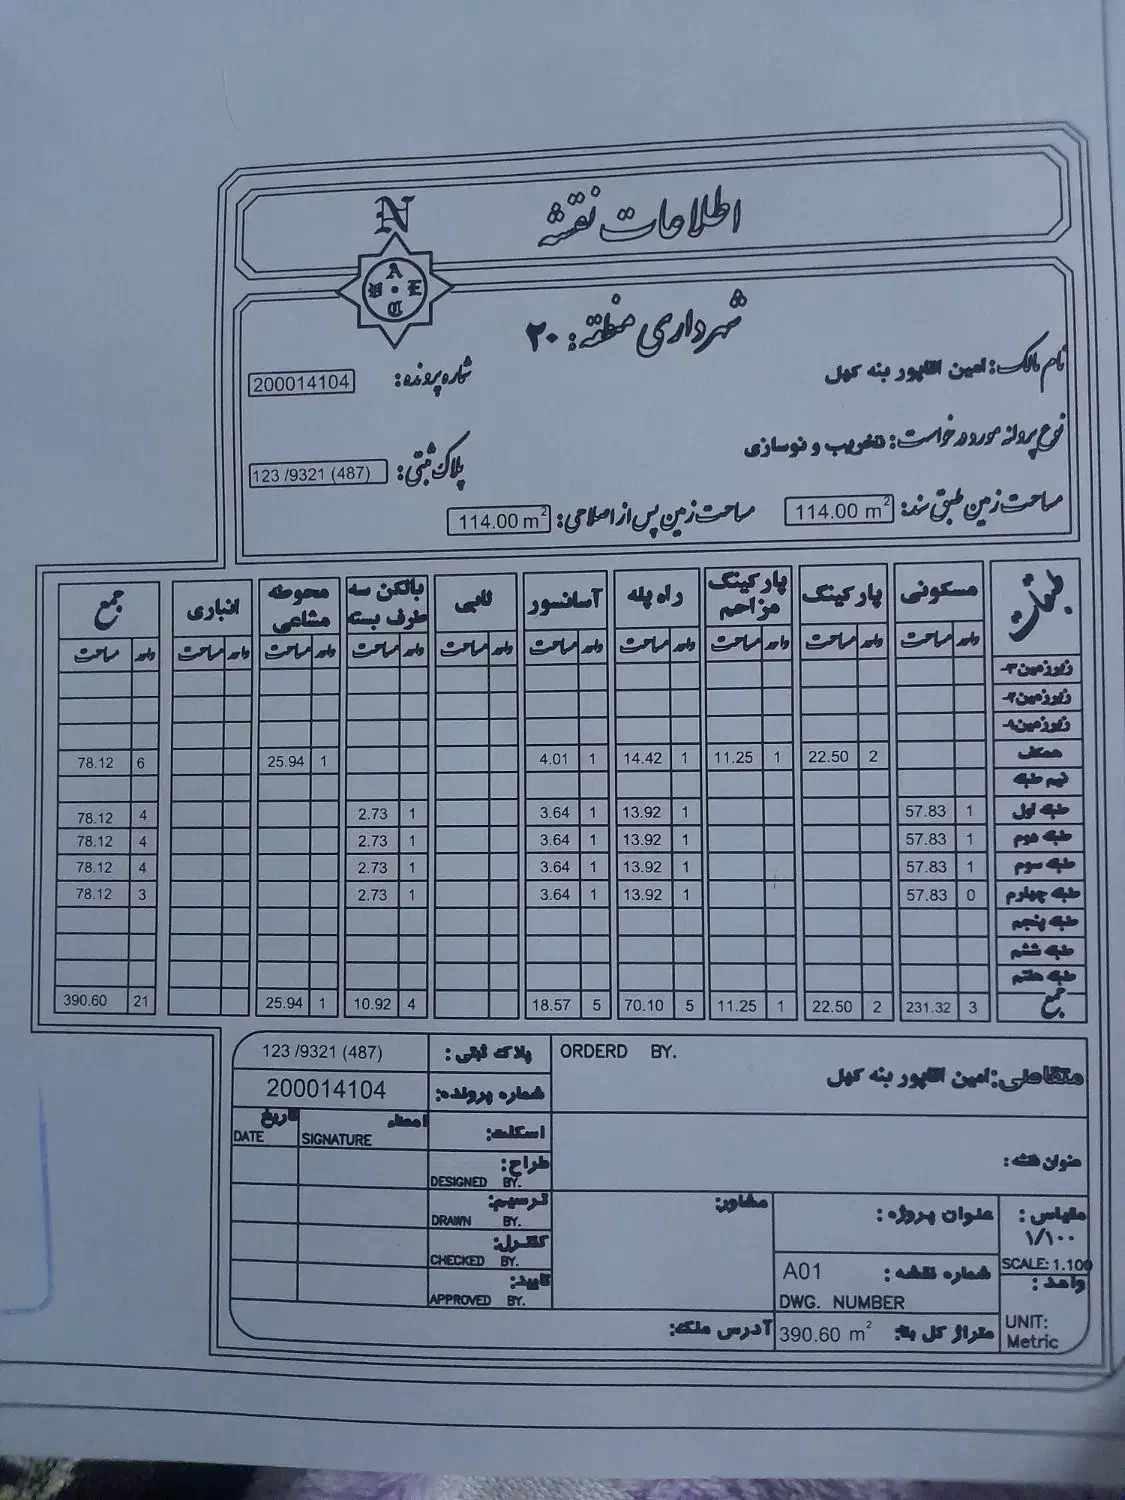 اطلاعات نقشه
N
A
E
شهرداری منطقه: ۲۰
نام مالک: امین اقلپور بنه کهل
شماره پرونده: 200014104
نوع پروانه مورد درخواست: تخریب و نوسازی
پلاک ثبتی: 123 /9321 (487)
مساحت زمین طبق سند: 114.00 m²
مساحت زمین پس از اصلاحی: 114.00 m²
طبقات مسکونی پارکینگ پارکینگ مزاحم راه پله آسانسور لابی بالکن سه طرف بسته محوطه مشاعی انباری جمع
واحد مساحت واحد مساحت واحد مساحت واحد مساحت واحد مساحت واحد مساحت واحد مساحت واحد مساحت واحد مساحت واحد مساحت
زیرزمین ۳-
زیرزمین ۲-
زیرزمین ۱-
همکف 2 22.50 1 11.25 1 14.42 1 4.01 1 25.94 6 78.12
نیم طبقه
طبقه اول 1 57.83 1 13.92 1 3.64 1 2.73 4 78.12
طبقه دوم 1 57.83 1 13.92 1 3.64 1 2.73 4 78.12
طبقه سوم 1 57.83 1 13.92 1 3.64 1 2.73 4 78.12
طبقه چهارم 0 57.83 1 13.92 1 3.64 1 2.73 3 78.12
طبقه پنجم
طبقه ششم
طبقه هفتم
جمع 3 231.32 2 22.50 1 11.25 5 70.10 5 18.57 4 10.92 1 25.94 21 390.60
ORDERD BY.
متقاضی: امین اقلپور بنه کهل
پلاک ثبتی: 123 /9321 (487)
شماره پرونده: 200014104
امضاء تاریخ
SIGNATURE DATE
اسکلت:
عنوان نقشه:
طراح:
DESIGNED BY.
ترسیم:
DRAWN BY.
کنترل:
CHECKED BY.
تایید:
APPROVED BY.
مقیاس: ۱/۱۰۰
SCALE: 1.100
عنوان پروژه:
مشاور:
شماره نقشه: A01
DWG. NUMBER
واحد:
UNIT:
Metric
متراژ کل بنا: 390.60 m²
آدرس ملک: